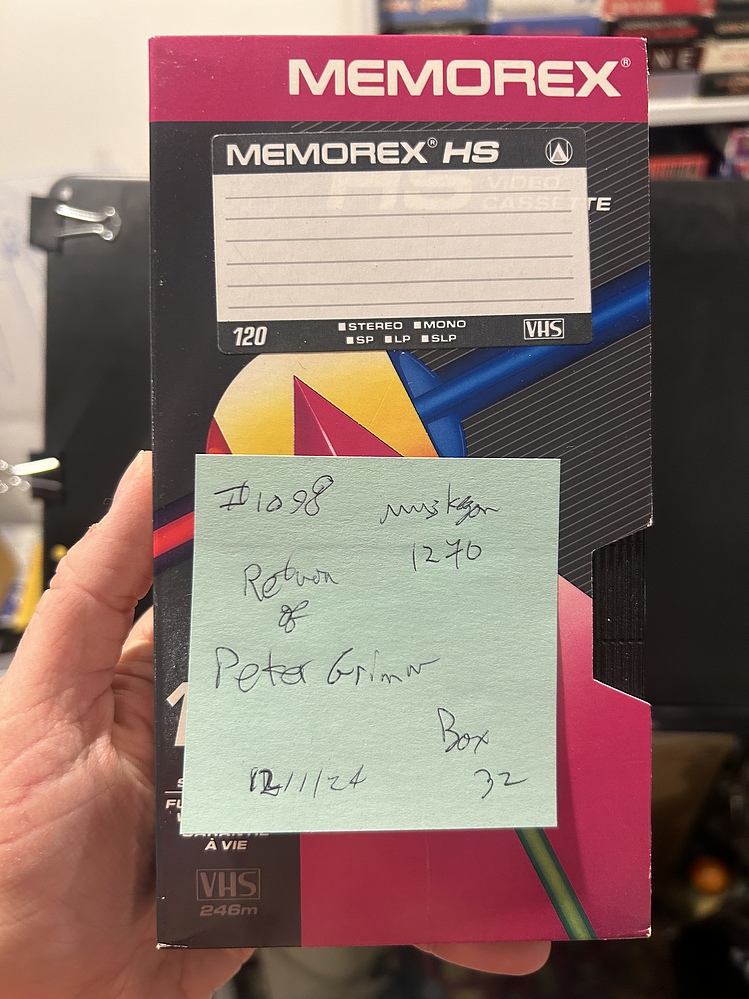 MEMOREX®
MEMOREX® HS
HS VIDEO
CASSETTE
120 STEREO MONO VHS
SP LP SLP
#1098 Muskegon
1270
Return
of
Peter Grimm
Box
12/1/24 32
À VIE
VHS
246m